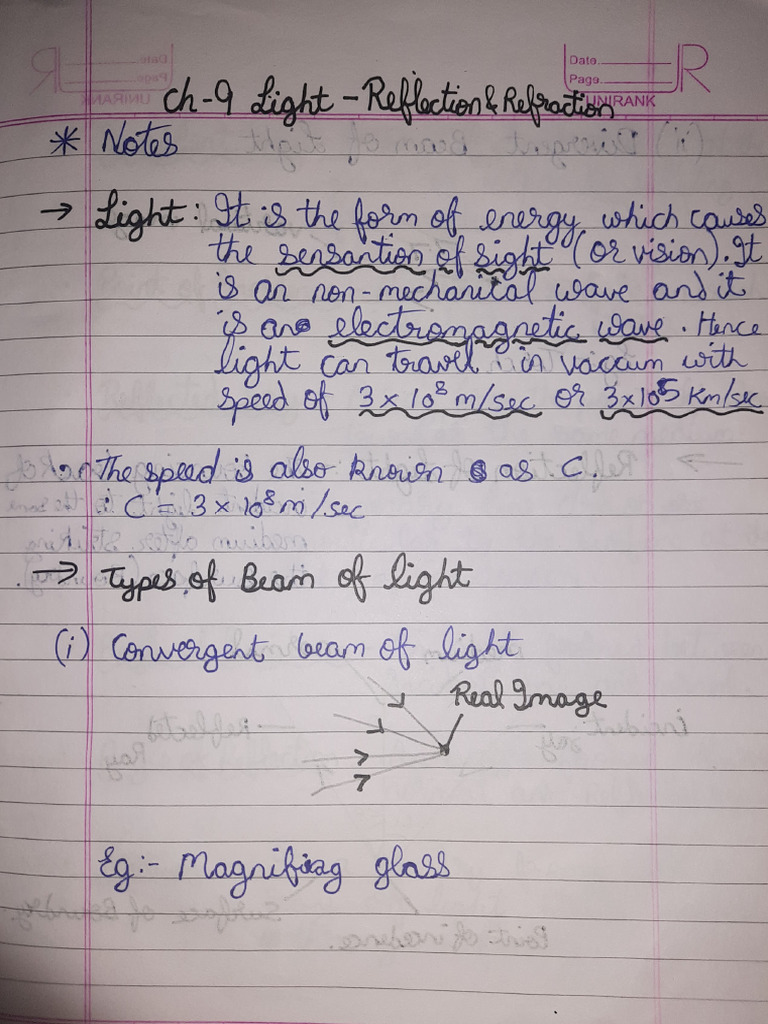 Date.
Page
R
UNIRANK
Ch-9 Light - Reflection & Refraction
* Notes
→ Light: It is the form of energy which causes
the sensantion of sight (or vision). It
is an non-mechanital wave and it
is an electromagnetic wave. Hence
light can travel in vaccum with
speed of 3 × 10⁸ m/sec or 3×10⁵ Km/sec
The speed is also known as C.
∴ C = 3 × 10⁸ m/sec
→ Types of Beam of light
(i) Convergent beam of light
Real Image
Eg:- Magnifing glass